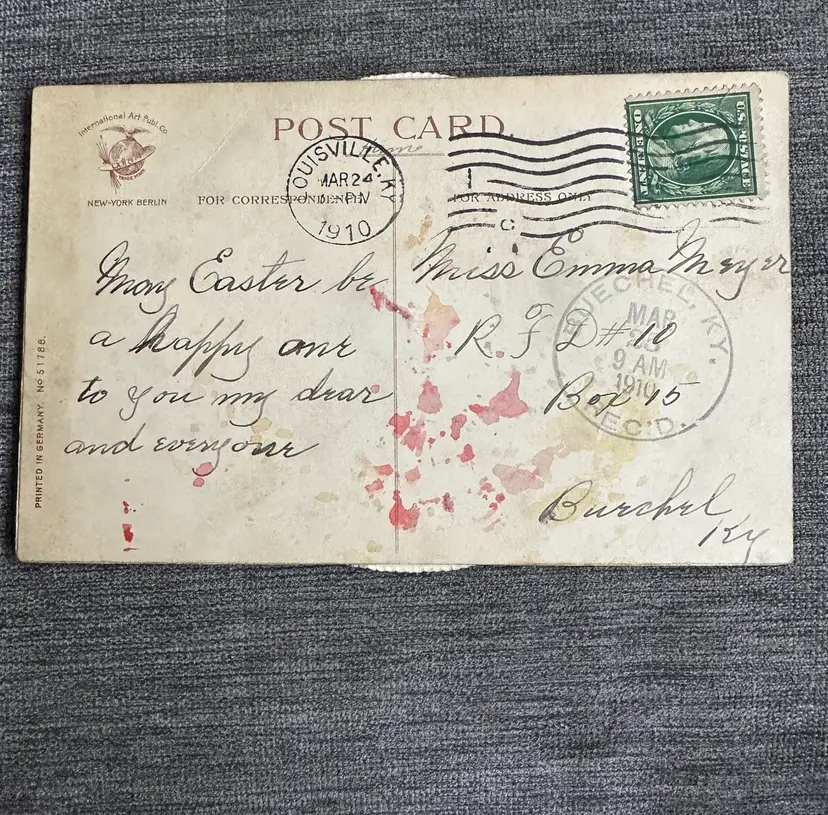 International Art Publ. Co.
TRADE MARK
NEW-YORK BERLIN
POST CARD.
FOR CORRESPONDENCE
FOR ADDRESS ONLY
LOUISVILLE, KY
MAR 24
1910
U.S. POSTAGE
ONE CENT
1
C
May Easter be
a happy one
to you my dear
and everyone
Miss Emma Meyer
R. F D # 10
Box 15
Buechel
Ky
BUECHEL, KY.
MAR
9 AM
1910
REC'D.
PRINTED IN GERMANY. No 51788.